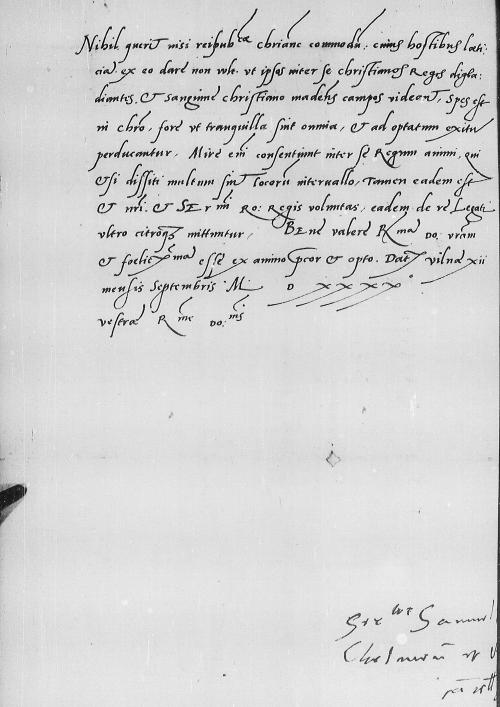 Nihil querit nisi reipub^cae chrianae commodu, cuius hostibus laeti:
ciam ex eo dare non vult, vt ipsos inter se christianos Reges digla:
diantes, et sanguine christiano madens campos videant, Spes est
in chro, fore vt tranquilla sint omnia, et ad optatum exitu
perducantur. Mire em consentiunt inter se Regum animi, qui
etsi dissiti multum sint locoru interuallo, Tamen eadem est
et nri, et SEr^mi Ro: Regis voluntas, eadem de re Legati
vltro citroq3 mittuntur. BEne valere R^ma Do: vram
et foelicissima esse ex animo pcor et opto. Dat vilnae xii
mensis Septembris M D xxxx°.
vestrae R^me Do:^nis
Samuel